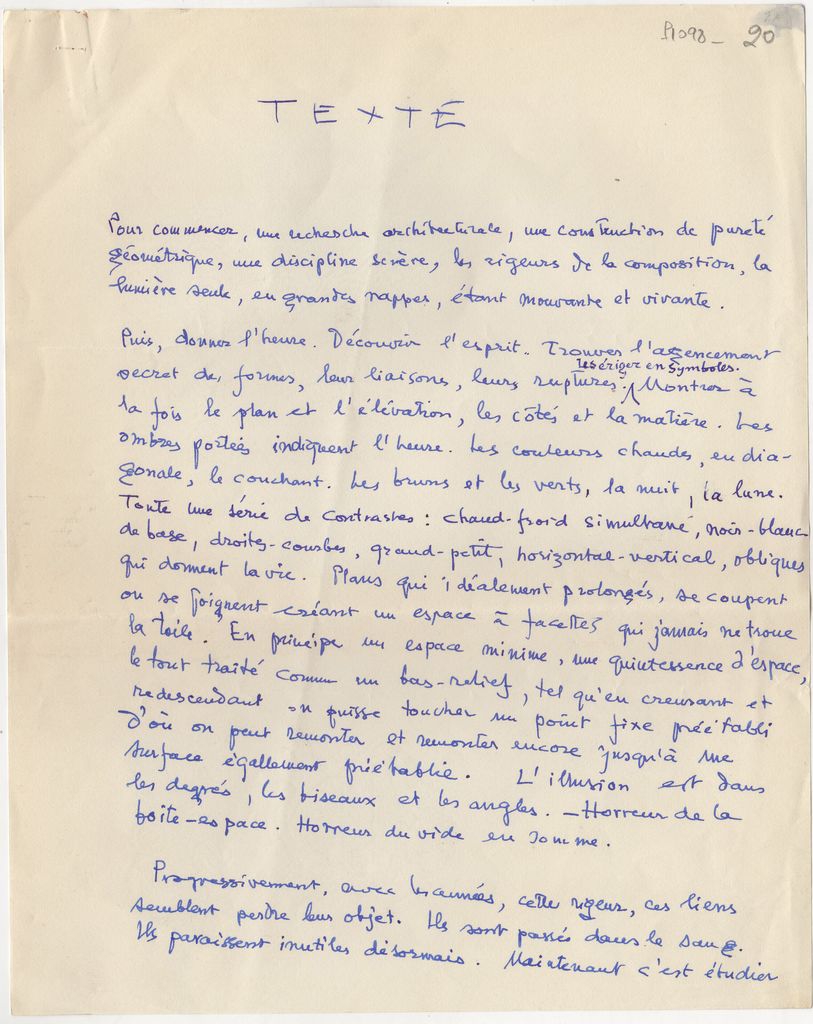 20
TEXTE
Pour commencer, une recherche architecturale, une construction de pureté
géométrique, une discipline sévère, les rigeurs de la composition, la
lumière seule, en grandes nappes, étant mouvante et vivante.
Puis, donner l'heure. Découvrir l'esprit.. Trouver l'agencement
les ériger en symboles.
secret des formes, leurs liaisons, leurs ruptures. Montrer à
la fois le plan et l'élévation, les côtés et la matière. Les
ombres portées indiquent l'heure. Les couleurs chaudes, en dia-
gonale, le couchant. Les bruns et les verts, la nuit, la lune.
Toute une série de contrastes : chaud-froid simultané, noir-blanc
de base, droites-courbes, grand-petit, horizontal-vertical, obliques
qui donnent la vie. Plans qui idéalement prolongés, se coupent
ou se joignent créant un espace à facettes qui jamais ne troue
la toile. En principe un espace minime, une quintessence d'espace,
le tout traité comme un bas-relief, tel qu'en creusant et
redescendant on puisse toucher un point fixe préétabli
d'où on peut remonter et remonter encore jusqu'à une
surface égallement préétablie. L'illusion est dans
les degrés, les biseaux et les angles. — Horreur de la
boîte-espace. Horreur du vide en somme.
Progressivement, avec les années, cette rigeur, ces liens
semblent perdre leur objet. Ils sont passés dans le sang.
Ils paraissent inutiles désormais. Maintenant c'est étudier